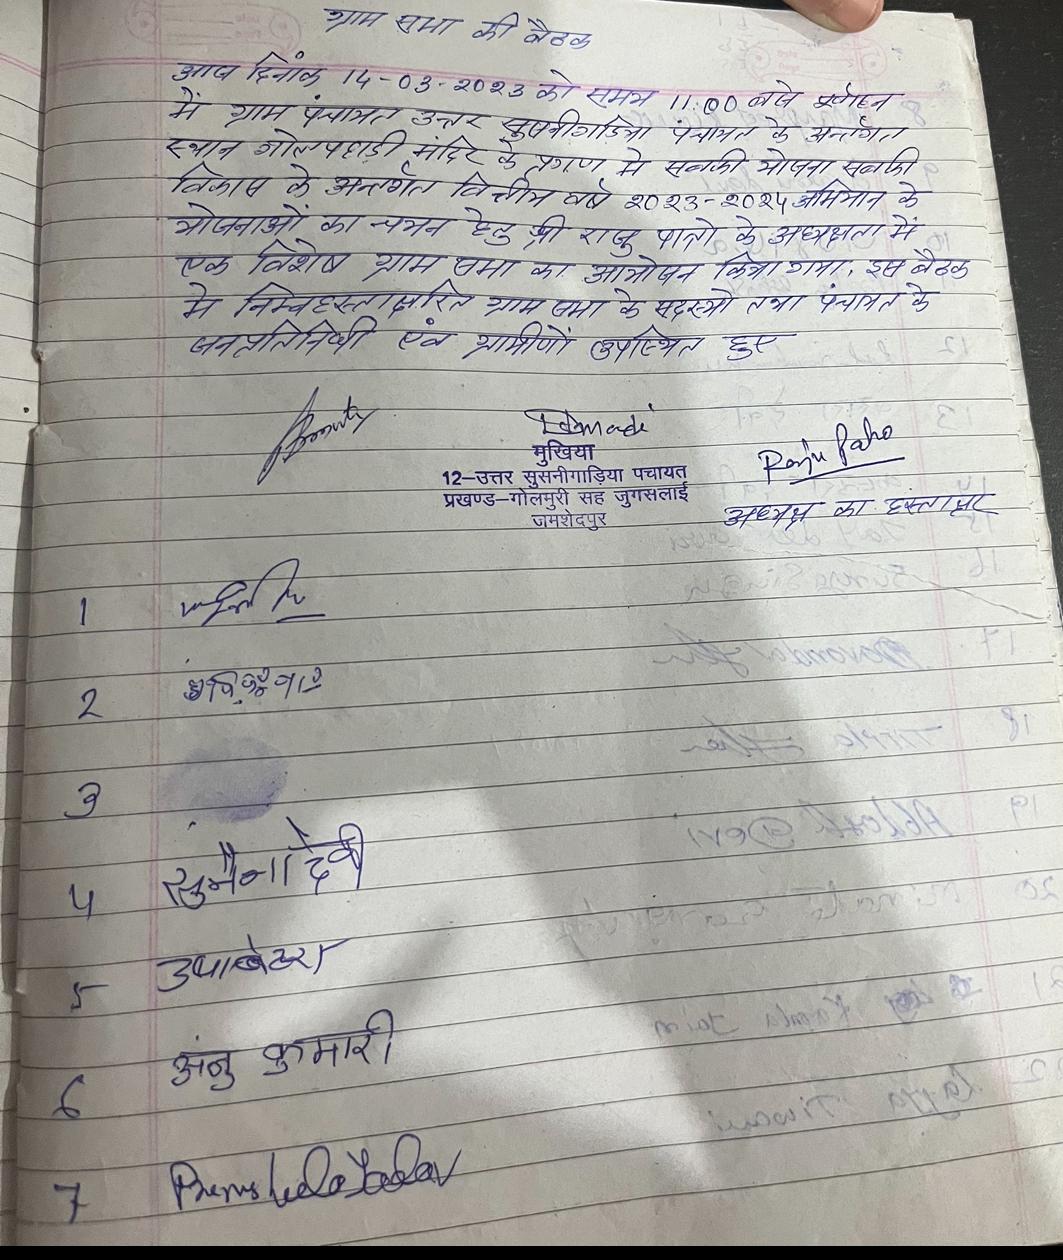 ग्राम सभा की बैठक
आज दिनांक 14-03-2023 को समय 11:00 बजे पूर्वाहन
में ग्राम पंचायत उत्तर सुसनीगड़िया पंचायत के अन्तर्गत
स्थान गोलपहाड़ी मंदिर के प्रांगण मे सबकी योजना सबकी
विकास के अन्तर्गत वित्तीय वर्ष 2023-2024 अभियान के
योजनाओं का चयन हेतु श्री राजु पात्रो के अध्यक्षता में
एक विशेष ग्राम सभा का आयोजन किया गया. इस बैठक
मे निम्नहस्ताक्षरित ग्राम सभा के सदस्यो तथा पंचायत के
जनप्रतिनिधी एंव ग्रामीणों उपस्थित हुए
मुखिया
12–उत्तर सुसनीगाड़िया पचायत
प्रखण्ड–गोलमुरी सह जुगसलाई
जमशेदपुर
Raju
अध्यक्ष का हस्ताक्षर
1
2
3
4 सुनैना देवी
5
6 अंजु कुमारी
7 Yadav